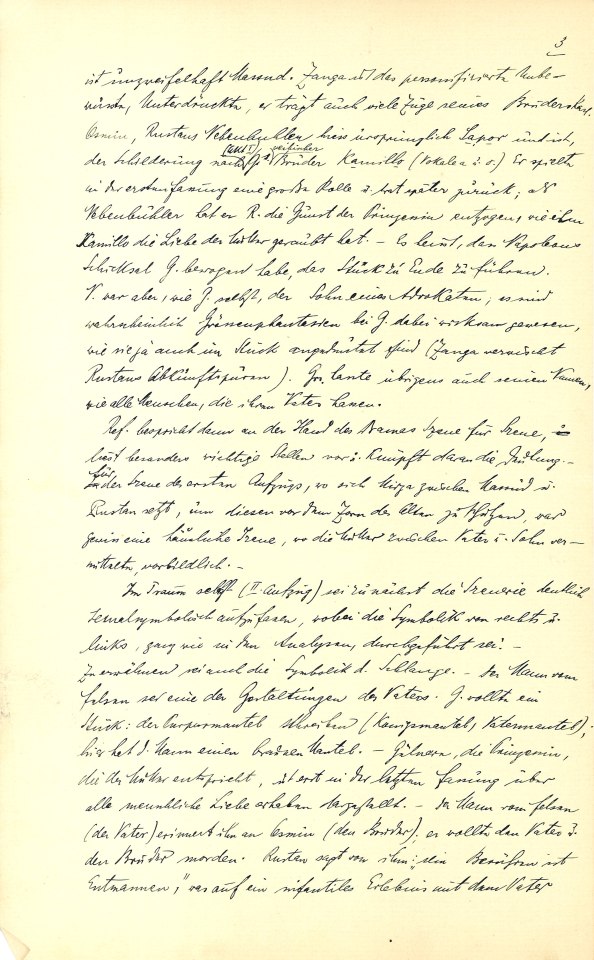 3
ist unzweifelhaft Massud. Zanga ist das personifizierte Unbe-
wusste, Unterdrückte, er trägt auch viele Züge seines Bruders Karl.
Osmin, Rustans Nebenbuhler hiess ursprünglich Sapor und ist,
der Schilderung nach G's Bruder Kamillo (Vokale a i o.) Er spielte
in der ersten Fassung eine große Rolle u. trat später zurück; als
Nebenbuhler hat er R. die Gunst der Prinzessin entzogen, wie ihm
Kamillo die Liebe der Mutter geraubt hat. – Es heisst, dass Napoleons
Schicksal G. bewogen habe, das Stück zu Ende zu führen.
N. war aber, wie G. selbst, der Sohn eines Advokaten; es sind
wahrscheinlich Grössenphantasien bei G. dabei wirksam gewesen,
wie sie ja auch im Stück angedeutet sind (Zanga verwischt
Rustans Abkunftspuren). Gr. hasste übrigens auch seinen Namen,
wie alle Menschen, die ihren Vater hassen.
Ref. bespricht dann an der Hand des Dramas Szene für Szene,
liest besonders wichtige Stellen vor u. knüpft daran die Deutung. –
Für die Szene des ersten Aufzugs, wo sich Mirza zwischen Massud u.
Rustan setzt, um diesen vor dem Zorn des Alten zu schützen, war
gewiss eine häusliche Szene, wo die Mutter zwischen Vater u. Sohn ver-
mittelte, vorbildlich. –
Im Traum selbst (II. Aufzug) sei zunächst die Szenerie deutlich
sexualsymbolisch aufzufassen, wobei die Symbolik von rechts u.
links, ganz wie in den Analysen, durchgeführt sei. –
Zu erwähnen sei auch die Symbolik d. Schlange. – Der Mann vom
Felsen sei eine der Gestaltungen des Vaters. G. wollte ein
Stück: der Purpurmantel schreiben (Königsmantel, Vatermantel);
hier hat d. Mann einen braunen Mantel. – Gülnare, die Prinzessin,
die der Mutter entspricht, ist erst in der letzten Fassung über
alle menschliche Liebe erhaben dargestellt. – Der Mann vom Felsen
(der Vater) erinnert ihn an Osmin (den Bruder); er wollte den Vater u.
den Bruder morden. Rustan sagt von ihm: „sein Berühren ist
Entmannen", was auf ein infantiles Erlebnis mit dem Vater